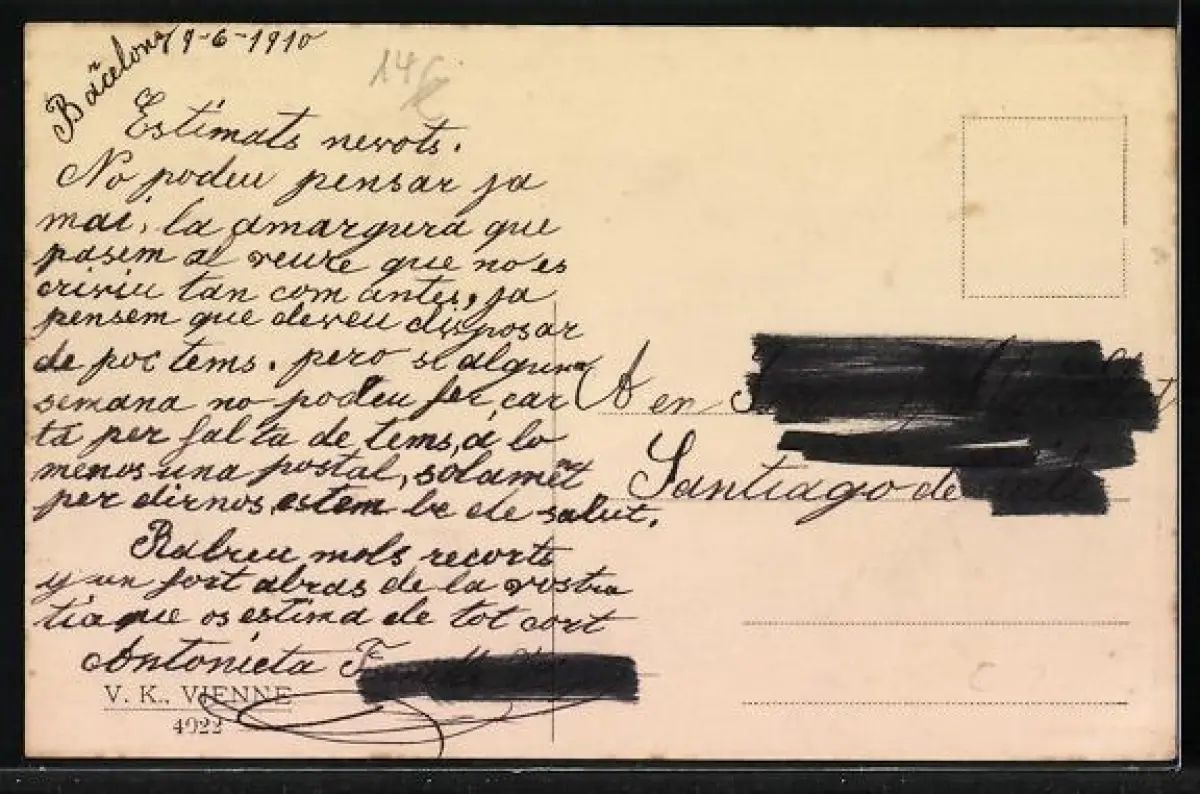 Barcelona 9-6-1910
14
Estimats nevots.
No podeu pensar ja
mai, la amargura que
pasem al veure que no es
criviu tan com antes, ja
pensem que deveu disposar
de poc tems. pero si alguna
semana no podeu fer, car
ta per falta de tems, á lo
menos una postal, solamẽt
per dirnos estem be de salut.
Rabreu mols recorts
y un fort abras de la vostra
tia que os estima de tot cort
Antonieta
V. K., VIENNE
4922
A en
Santiago de